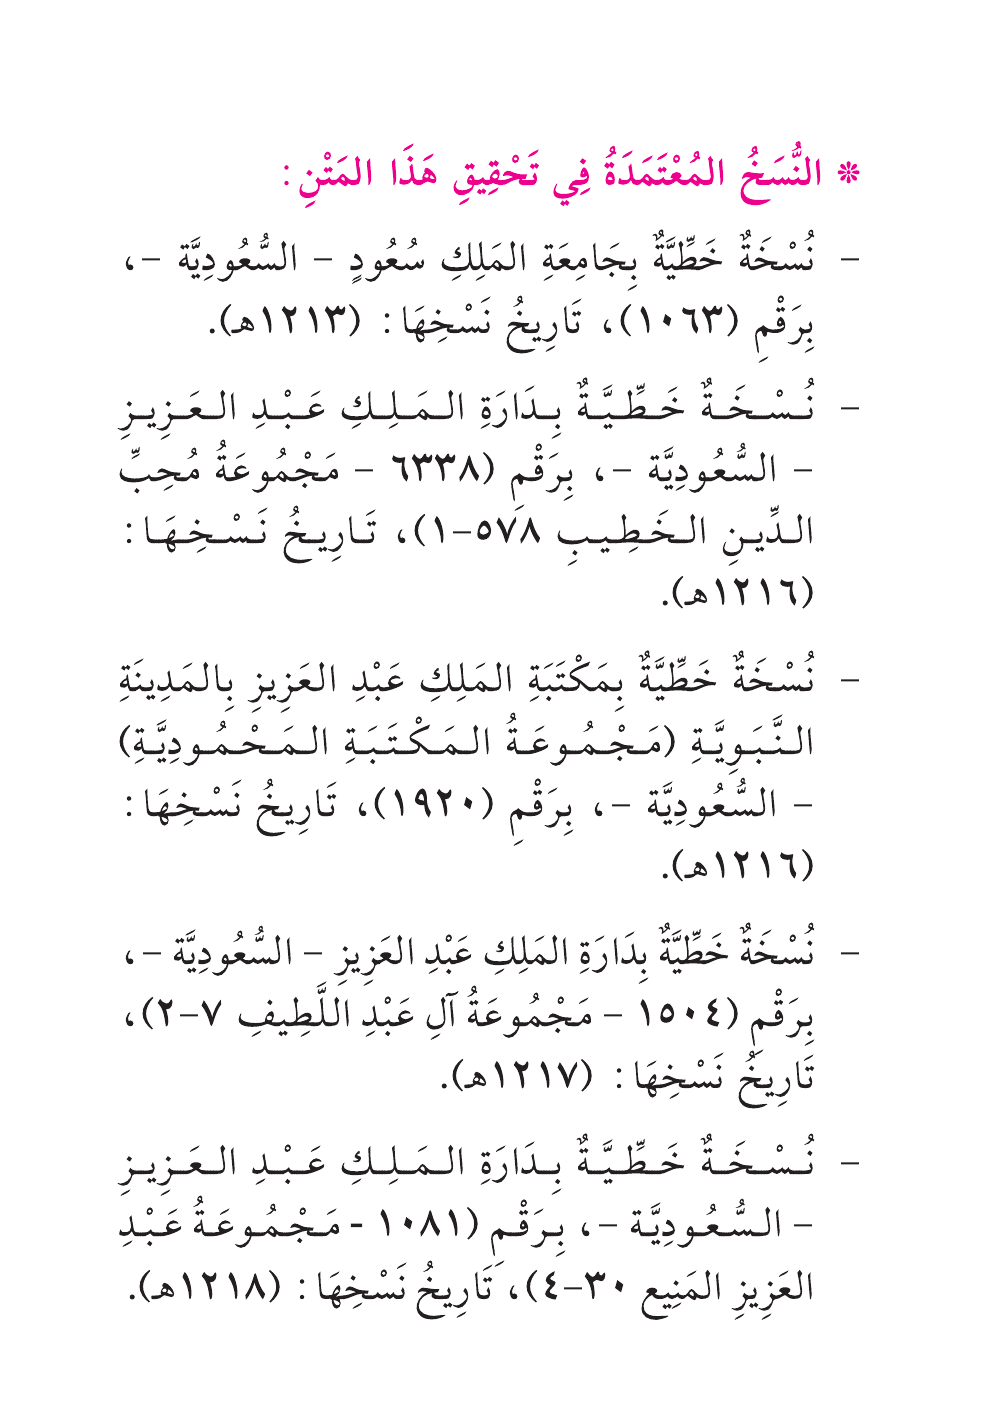 * النُّسَخُ المُعْتَمَدَةُ فِي تَحْقِيقِ هَذَا المَتْنِ:
- نُسْخَةٌ خَطِّيَّةٌ بِجَامِعَةِ المَلِكِ سُعُودٍ – السُّعُودِيَّة –،
بِرَقْمِ (١٠٦٣)، تَارِيخُ نَسْخِهَا: (١٢١٣هـ).
- نُسْخَةٌ خَطِّيَّةٌ بِدَارَةِ المَلِكِ عَبْدِ العَزِيزِ
– السُّعُودِيَّة –، بِرَقْمِ (٦٣٣٨ – مَجْمُوعَةُ مُحِبِّ
الدِّينِ الخَطِيبِ ٥٧٨–١)، تَارِيخُ نَسْخِهَا:
(١٢١٦هـ).
- نُسْخَةٌ خَطِّيَّةٌ بِمَكْتَبَةِ المَلِكِ عَبْدِ العَزِيزِ بِالمَدِينَةِ
النَّبَوِيَّةِ (مَجْمُوعَةُ المَكْتَبَةِ المَحْمُودِيَّةِ)
– السُّعُودِيَّة –، بِرَقْمِ (١٩٢٠)، تَارِيخُ نَسْخِهَا:
(١٢١٦هـ).
- نُسْخَةٌ خَطِّيَّةٌ بِدَارَةِ المَلِكِ عَبْدِ العَزِيزِ – السُّعُودِيَّة –،
بِرَقْمِ (١٥٠٤ – مَجْمُوعَةُ آلِ عَبْدِ اللَّطِيفِ ٧–٢)،
تَارِيخُ نَسْخِهَا: (١٢١٧هـ).
- نُسْخَةٌ خَطِّيَّةٌ بِدَارَةِ المَلِكِ عَبْدِ العَزِيزِ
– السُّعُودِيَّة –، بِرَقْمِ (١٠٨١ - مَجْمُوعَةُ عَبْدِ
العَزِيزِ المَنِيع ٣٠–٤)، تَارِيخُ نَسْخِهَا: (١٢١٨هـ).